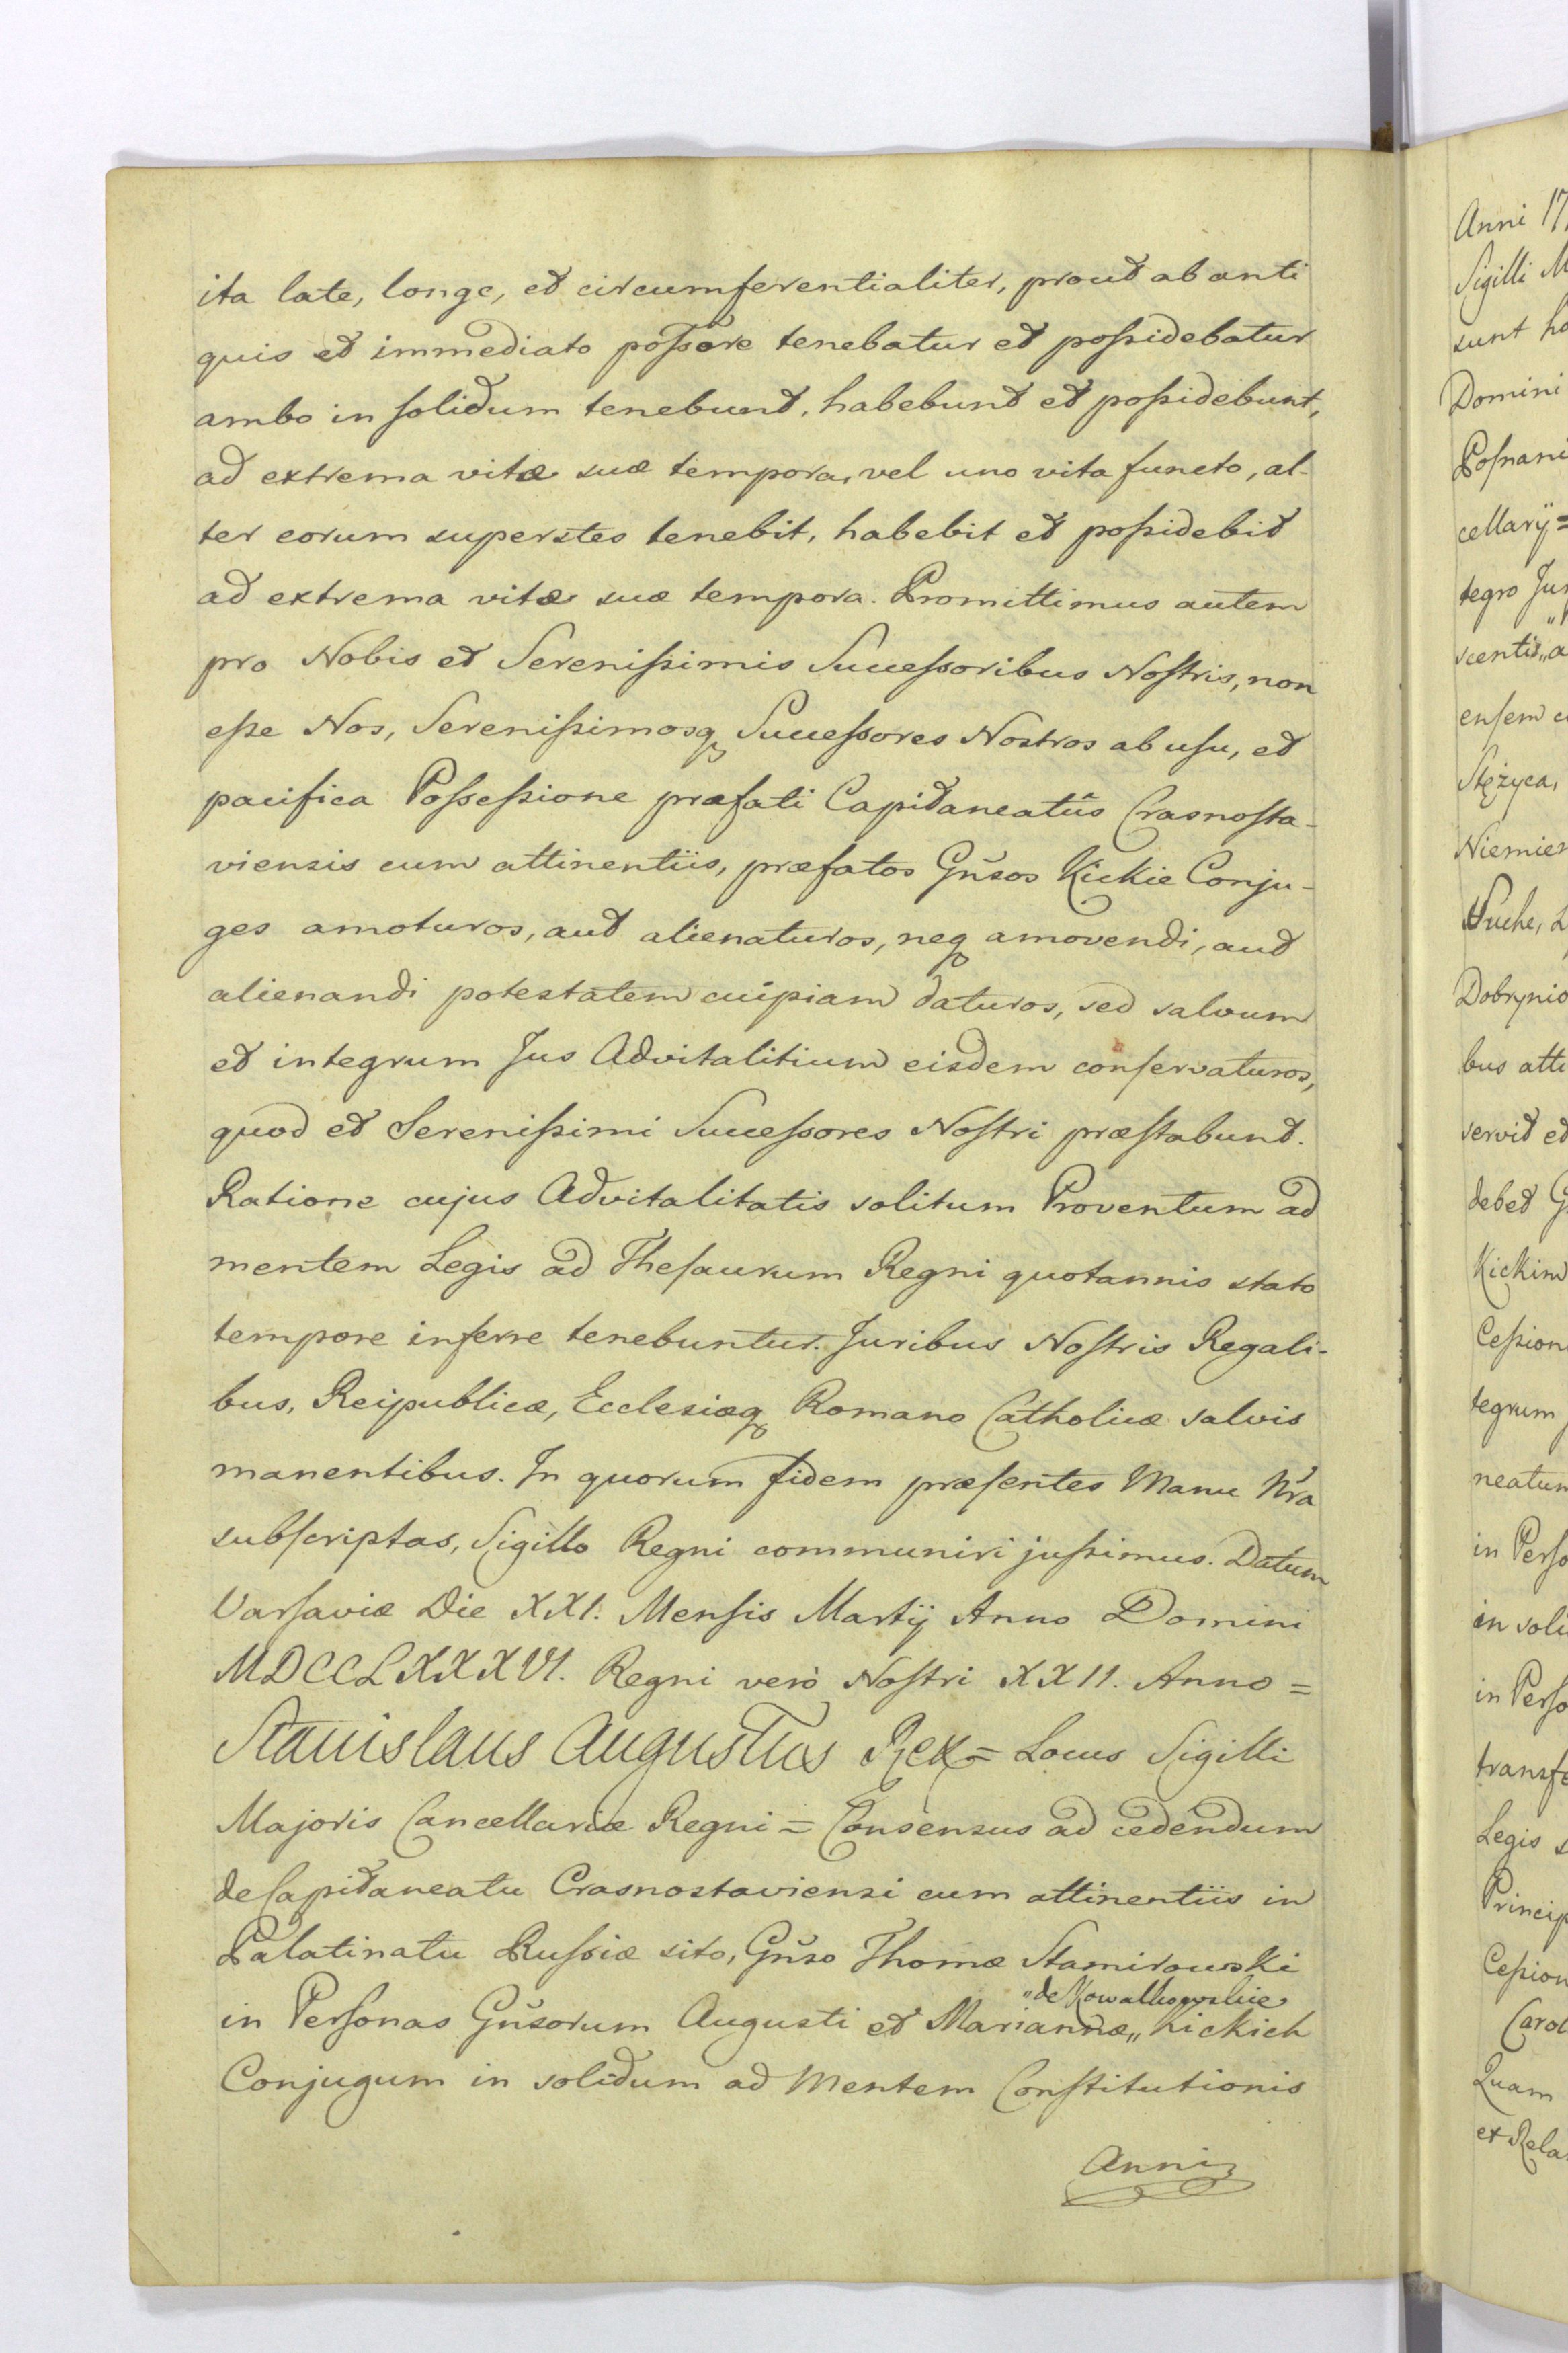 ita late, longe, et circumferentialiter, prout ab anti
quis et immediato posśore tenebatur et possidebatur
ambo in solidum tenebunt, habebunt et possidebunt,
ad extrema vitæ suæ tempora, vel uno vita functo, al-
ter eorum superstes tenebit, habebit et possidebit
ad extrema vitæ suæ tempora. Promittimus autem
pro Nobis et Serenissimis Successoribus Nostris, non
esse Nos, Serenissimosq Successores Nostros ab usu, et
pacifica Possessione præfati Capitaneatûs Crasnosta-
viensis cum attinentiis, præfatos Gñsos Kickie Conju-
ges amoturos, aut alienaturos, neq amovendi, aut
alienandi potestatem cuipiam daturos, sed salvum
et integrum Jus Advitalitium eisdem conservaturos,
quod et Serenissimi Successores Nostri præstabunt.
Ratione cujus Advitalitatis solitum Proventum ad
mentem Legis ad Thesaurum Regni quotannis stato
tempore inferre tenebuntur. Juribus Nostris Regali-
bus, Reipublicæ, Ecclesiæq Romano Catholicæ salvis
manentibus. In quorum fidem præsentes Manu Nrã
subscriptas, Sigillo Regni communiri jussimus. Datum
Varsaviæ Die XXI. Mensis Martij Anno Domini
MDCCLXXXVI. Regni verò Nostri XXII. Anno =
Stanislaus Augustus Rex = Locus Sigilli
Majoris Cancellariæ Regni = Consensus ad cedendum
de Capitaneatu Crasnostaviensi cum attinentiis in
Palatinatu Russiæ sito, Gñso Thomæ Stamirowski
"de Kowalkowskie
in Personas Gñsorum Augusti et Mariannæ „ Kickich
Conjugum in solidum ad Mentem Constitutionis
Anni
Anni 17
Sigilli M
sunt ha
Domini
Posnani
cellarij =
tegro Jur
scentis „ a
ensem c
Stężyca,
Niemier
Suche, L
Dobrynio
bus atti
servit et
debet G
Kickim
Cession
tegrum
neatum
in Perso
in soli
in Perso
transfe
Legis s
Princip
Cession
Carol
Quam
ex Rela